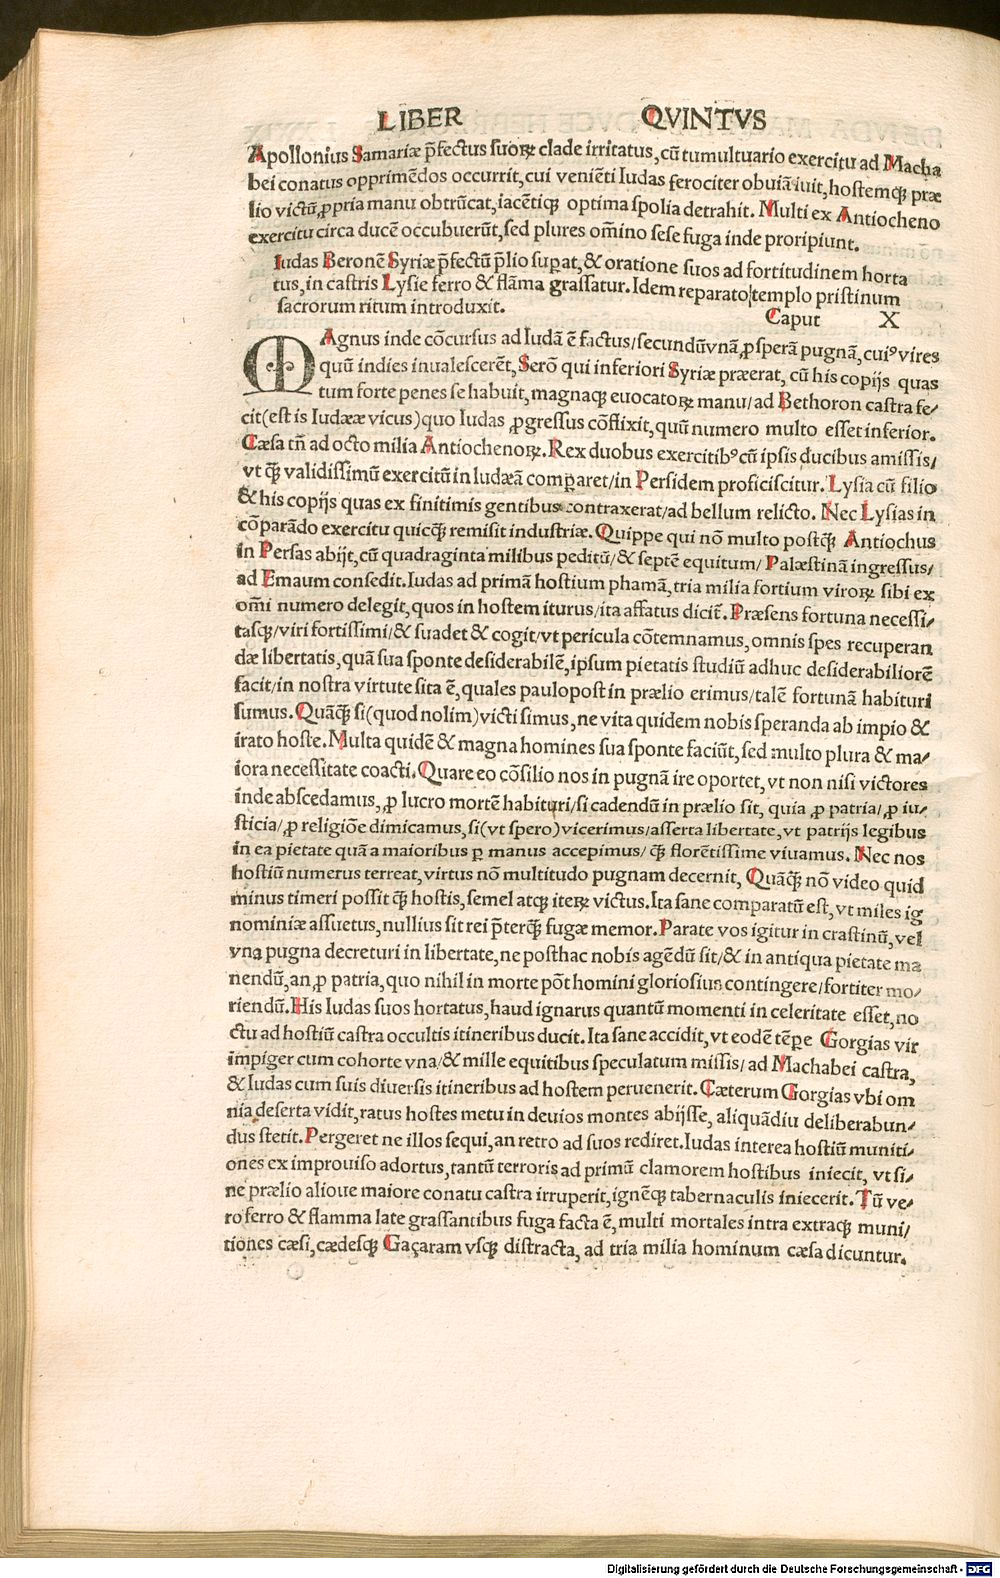 LIBER QVINTVS
Apollonius Samariæ p̄fectus suoꝝ clade irritatus, cū tumultuario exercitu ad Macha
bei conatus opprimēdos occurrit, cui veniēti Iudas ferociter obuiā iuit, hostemqꝫ præ
lio victū, ꝓpria manu obtrūcat, iacētiqꝫ optima spolia detrahit. Multi ex Antiocheno
exercitu circa ducē occubuerūt, sed plures om̄ino sese fuga inde proripiunt.
Iudas Beronē Syriæ p̄fectū p̄lio suꝑat, & oratione suos ad fortitudinem horta
tus, in castris Lysie ferro & flāma grassatur. Idem reparato templo pristinum
sacrorum ritum introduxit. Caput X
MAgnus inde cōcursus ad Iudā ē factus/secundūvnā, ꝓsperā pugnā, cuiꝰ vires
quū indies inualescerēt, Serō qui inferiori Syriæ præerat, cū his copijs quas
tum forte penes se habuit, magnaqꝫ euocatoꝝ manu/ad Bethoron castra fe/
cit(est is Iudææ vicus)quo Iudas ꝓgressus cōflixit, quū numero multo esset inferior.
Cæsa tn̄ ad octo milia Antiochenoꝝ. Rex duobus exercitibꝰ cū ipsis ducibus amissis/
vt qꝫ validissimū exercitū in Iudæā comꝑaret/in Persidem proficiscitur. Lysia cū filio
& his copijs quas ex finitimis gentibus contraxerat/ad bellum relicto. Nec Lysias in
cōparādo exercitu quicqꝫ remisit industriæ. Quippe qui nō multo postqꝫ Antiochus
in Persas abijt, cū quadraginta milibus peditū/& septē equitum/ Palæstinā ingressus/
ad Emaum consedit. Iudas ad primā hostium phamā, tria milia fortium viroꝝ sibi ex
om̄i numero delegit, quos in hostem iturus/ita affatus dicit̄. Præsens fortuna necessi/
tasqꝫ/viri fortissimi/& suadet & cogit/vt pericula cōtemnamus, omnis spes recuperan
dæ libertatis, quā sua sponte desiderabilē, ipsum pietatis studiū adhuc desiderabiliorē
facit/in nostra virtute sita ē, quales paulopost in prælio erimus/talē fortunā habituri
sumus. Quāqꝫ si(quod nolim)victi simus, ne vita quidem nobis speranda ab impio &
irato hoste. Multa quidē & magna homines sua sponte faciūt, sed multo plura & ma/
iora necessitate coacti. Quare eo cōsilio nos in pugnā ire oportet, vt non nisi victores
inde abscedamus, ꝓ lucro mortē habituri/si cadendū in prælio sit, quia ꝓ patria/ꝓ iu/
sticia/ꝓ religiōe dimicamus, si(vt spero)vicerimus/asserta libertate, vt patrijs legibus
in ea pietate quā a maioribus ꝑ manus accepimus/ qꝫ florētissime viuamus. Nec nos
hostiū numerus terreat, virtus nō multitudo pugnam decernit, Quāqꝫ nō video quid
minus timeri possit qꝫ hostis, semel atqꝫ iteꝝ victus. Ita sane comparatū est, vt miles ig
nominiæ assuetus, nullius sit rei p̄terqꝫ fugæ memor. Parate vos igitur in crastinū, vel
vna pugna decreturi in libertate, ne posthac nobis agēdū sit/& in antiqua pietate ma
nendū, an ꝓ patria, quo nihil in morte pōt homini gloriosius contingere/fortiter mo/
riendū. His Iudas suos hortatus, haud ignarus quantū momenti in celeritate esset, no
ctu ad hostiū castra occultis itineribus ducit. Ita sane accidit, vt eodē tēpe Gorgias vir
impiger cum cohorte vna/& mille equitibus speculatum missis/ ad Machabei castra,
& Iudas cum suis diuersis itineribus ad hostem peruenerit. Cæterum Gorgias vbi om
nia deserta vidit, ratus hostes metu in deuios montes abijsse, aliquādiu deliberabun/
dus stetit. Pergeret ne illos sequi, an retro ad suos rediret. Iudas interea hostiū muniti/
ones ex improuiso adortus, tantū terroris ad primū clamorem hostibus iniecit, vt si/
ne prælio alioue maiore conatu castra irruperit, ignēqꝫ tabernaculis iniecerit. Tū ve/
ro ferro & flamma late grassantibus fuga facta ē, multi mortales intra extraqꝫ muni/
tiones cæsi, cædesqꝫ Gaçaram vsqꝫ distracta, ad tria milia hominum cæsa dicuntur.
Digitalisierung gefördert durch die Deutsche Forschungsgemeinschaft - DFG